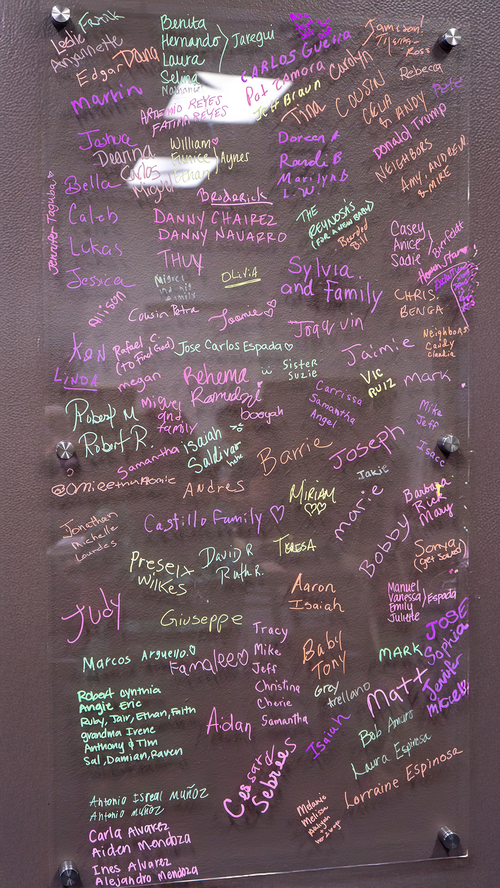 Frank
Leslie
Anjannette
Edgar Dana
Martin
Benita
Hernando
Laura
Selina
Nathaniel
Jaregui
ARTEMIO REYES
FATIMA REYES
CARLOS Guerra
Pat Zamora
Jeff Braun
Carolyn
Tina
Jameson!
Ross
COUSIN
Rebecca
Pete
& ANDY
Donald Trump
NEIGHBORS
AMY, ANDREW
& MIKE
Joshua
Deanna
Carlos
Miguel
William
Eunice
Ethan
Aynes
Doreen A
Randi B
Marilyn B
L.W.
Bella
Jennifer Taguba
Broderick
Caleb
DANNY CHAIREZ
DANNY NAVARRO
THE
REYNOSA'S
(FOR A NEW BABY)
Bearded
Bill
Casey
Anice
Sadie
Lukas
THUY
Jessica
Miguel
and his
family
OLIVIA
Sylvia
and Family
CHRIS.
BENGA
Allison
Cousin Petra
Joanie
Joaquin
Neighbors
Caddy
Claudia
Ken
Rafael C.
(to find God)
megan
Jose Carlos Espada
Jaimie
LINDA
Rehema
Ramadni
Sister
Suzie
VIC
RUIZ
mark
Robert M
Robert R.
Miguel
and
family
booyah
Carrissa
Samantha
Angel
Mike
Jeff
Isacc
Samantha
isaiah
Saldivar
Barrie
Joseph
Jakie
Andres
MIRIAM
marie
Barbara
Rick
Mary
Jonathan
Michelle
Lourdes
Castillo Family
Bobby
Preselt
Wilkes
David R
Ruth R.
TERESA
Sonya
(get saved)
Judy
Giuseppe
Aaron
Isaiah
Manuel
Vanessa
Emily
Juliette
Espada
Marcos Arguello.
Famalee
Tracy
Mike
Jeff
Christina
Cherie
Samantha
Baby
Tony
MARK
JOSE
Sophia
Jennifer
Robert Cynthia
Angie Eric
Ruby, Jair, Ethan, Faith
grandma Irene
Anthony & Tim
Sal, Damian, Raven
Aidan
Grey
Trellano
Matt
Isaiah
Bob Amaro
Laura Espinosa
Cessar
Lorraine Espinosa
Antonio Isreal MUÑOZ
Antonio MUÑOZ
Melanie
Melisa
Carla Alvarez
Aiden Mendoza
Ines Alvarez
Alejandro Mendoza